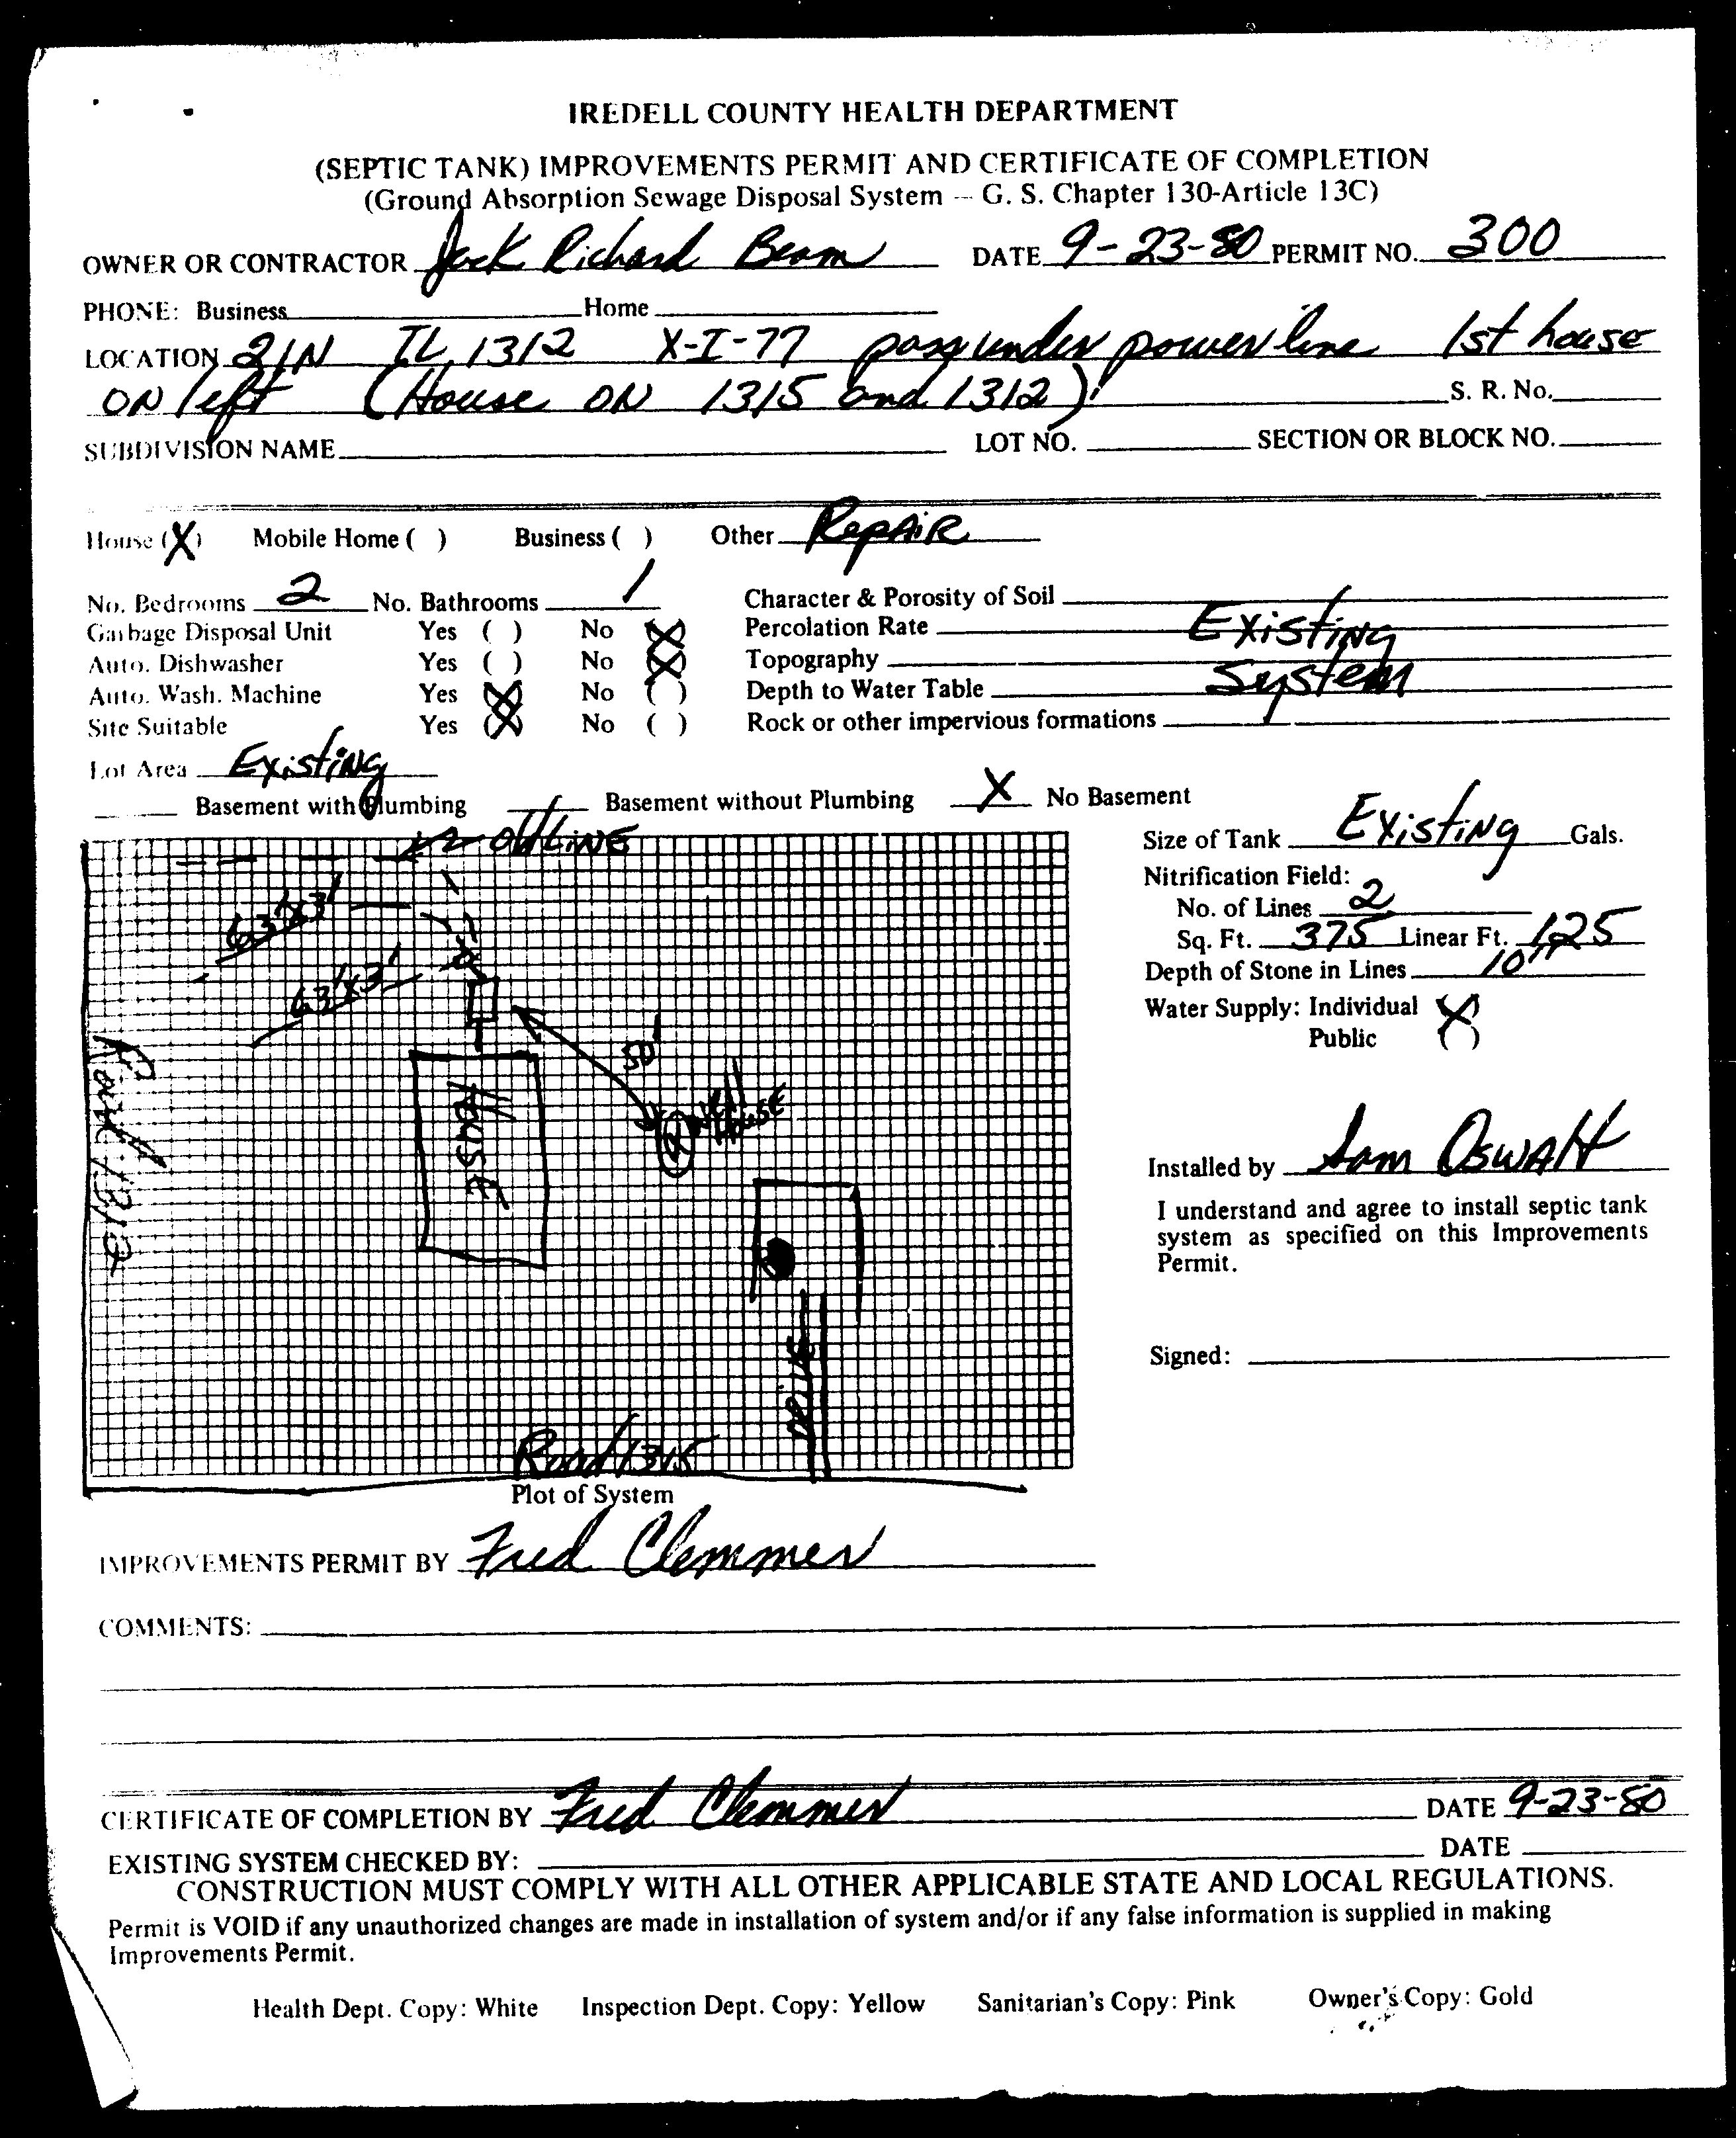 IREDELL COUNTY HEALTH DEPARTMENT
(SEPTIC TANK) IMPROVEMENTS PERMIT AND CERTIFICATE OF COMPLETION
(Ground Absorption Sewage Disposal System -- G. S. Chapter 130-Article 13C)
OWNER OR CONTRACTOR Jack Richard Beam DATE 9-23-80 PERMIT NO. 300
PHONE: Business Home
LOCATION 21N TL 1312 X-I-77 pass under power line 1st house
ON left (House ON 1315 and 1312) S. R. No.
SUBDIVISION NAME LOT NO. SECTION OR BLOCK NO.
House (X) Mobile Home ( ) Business ( ) Other Repair
No. Bedrooms 2 No. Bathrooms 1 Character & Porosity of Soil
Garbage Disposal Unit Yes ( ) No (X) Percolation Rate Existing
Auto. Dishwasher Yes ( ) No (X) Topography System
Auto. Wash. Machine Yes (X) No ( ) Depth to Water Table
Site Suitable Yes (X) No ( ) Rock or other impervious formations
Lot Area Existing
Basement with Plumbing Basement without Plumbing X No Basement
Size of Tank Existing Gals.
Nitrification Field:
No. of Lines 2
Sq. Ft. 375 Linear Ft. 125
Depth of Stone in Lines 10"
Water Supply: Individual (X)
Public ( )
Installed by Sam Oswalt
I understand and agree to install septic tank
system as specified on this Improvements
Permit.
Signed:
old LINE
63'x3'
63'x3'
50'
Well
House
House
Road 1312
Drive
Road 1315
Plot of System
IMPROVEMENTS PERMIT BY Fred Clemmer
COMMENTS:
CERTIFICATE OF COMPLETION BY Fred Clemmer DATE 9-23-80
EXISTING SYSTEM CHECKED BY: DATE
CONSTRUCTION MUST COMPLY WITH ALL OTHER APPLICABLE STATE AND LOCAL REGULATIONS.
Permit is VOID if any unauthorized changes are made in installation of system and/or if any false information is supplied in making
Improvements Permit.
Health Dept. Copy: White Inspection Dept. Copy: Yellow Sanitarian's Copy: Pink Owner's Copy: Gold